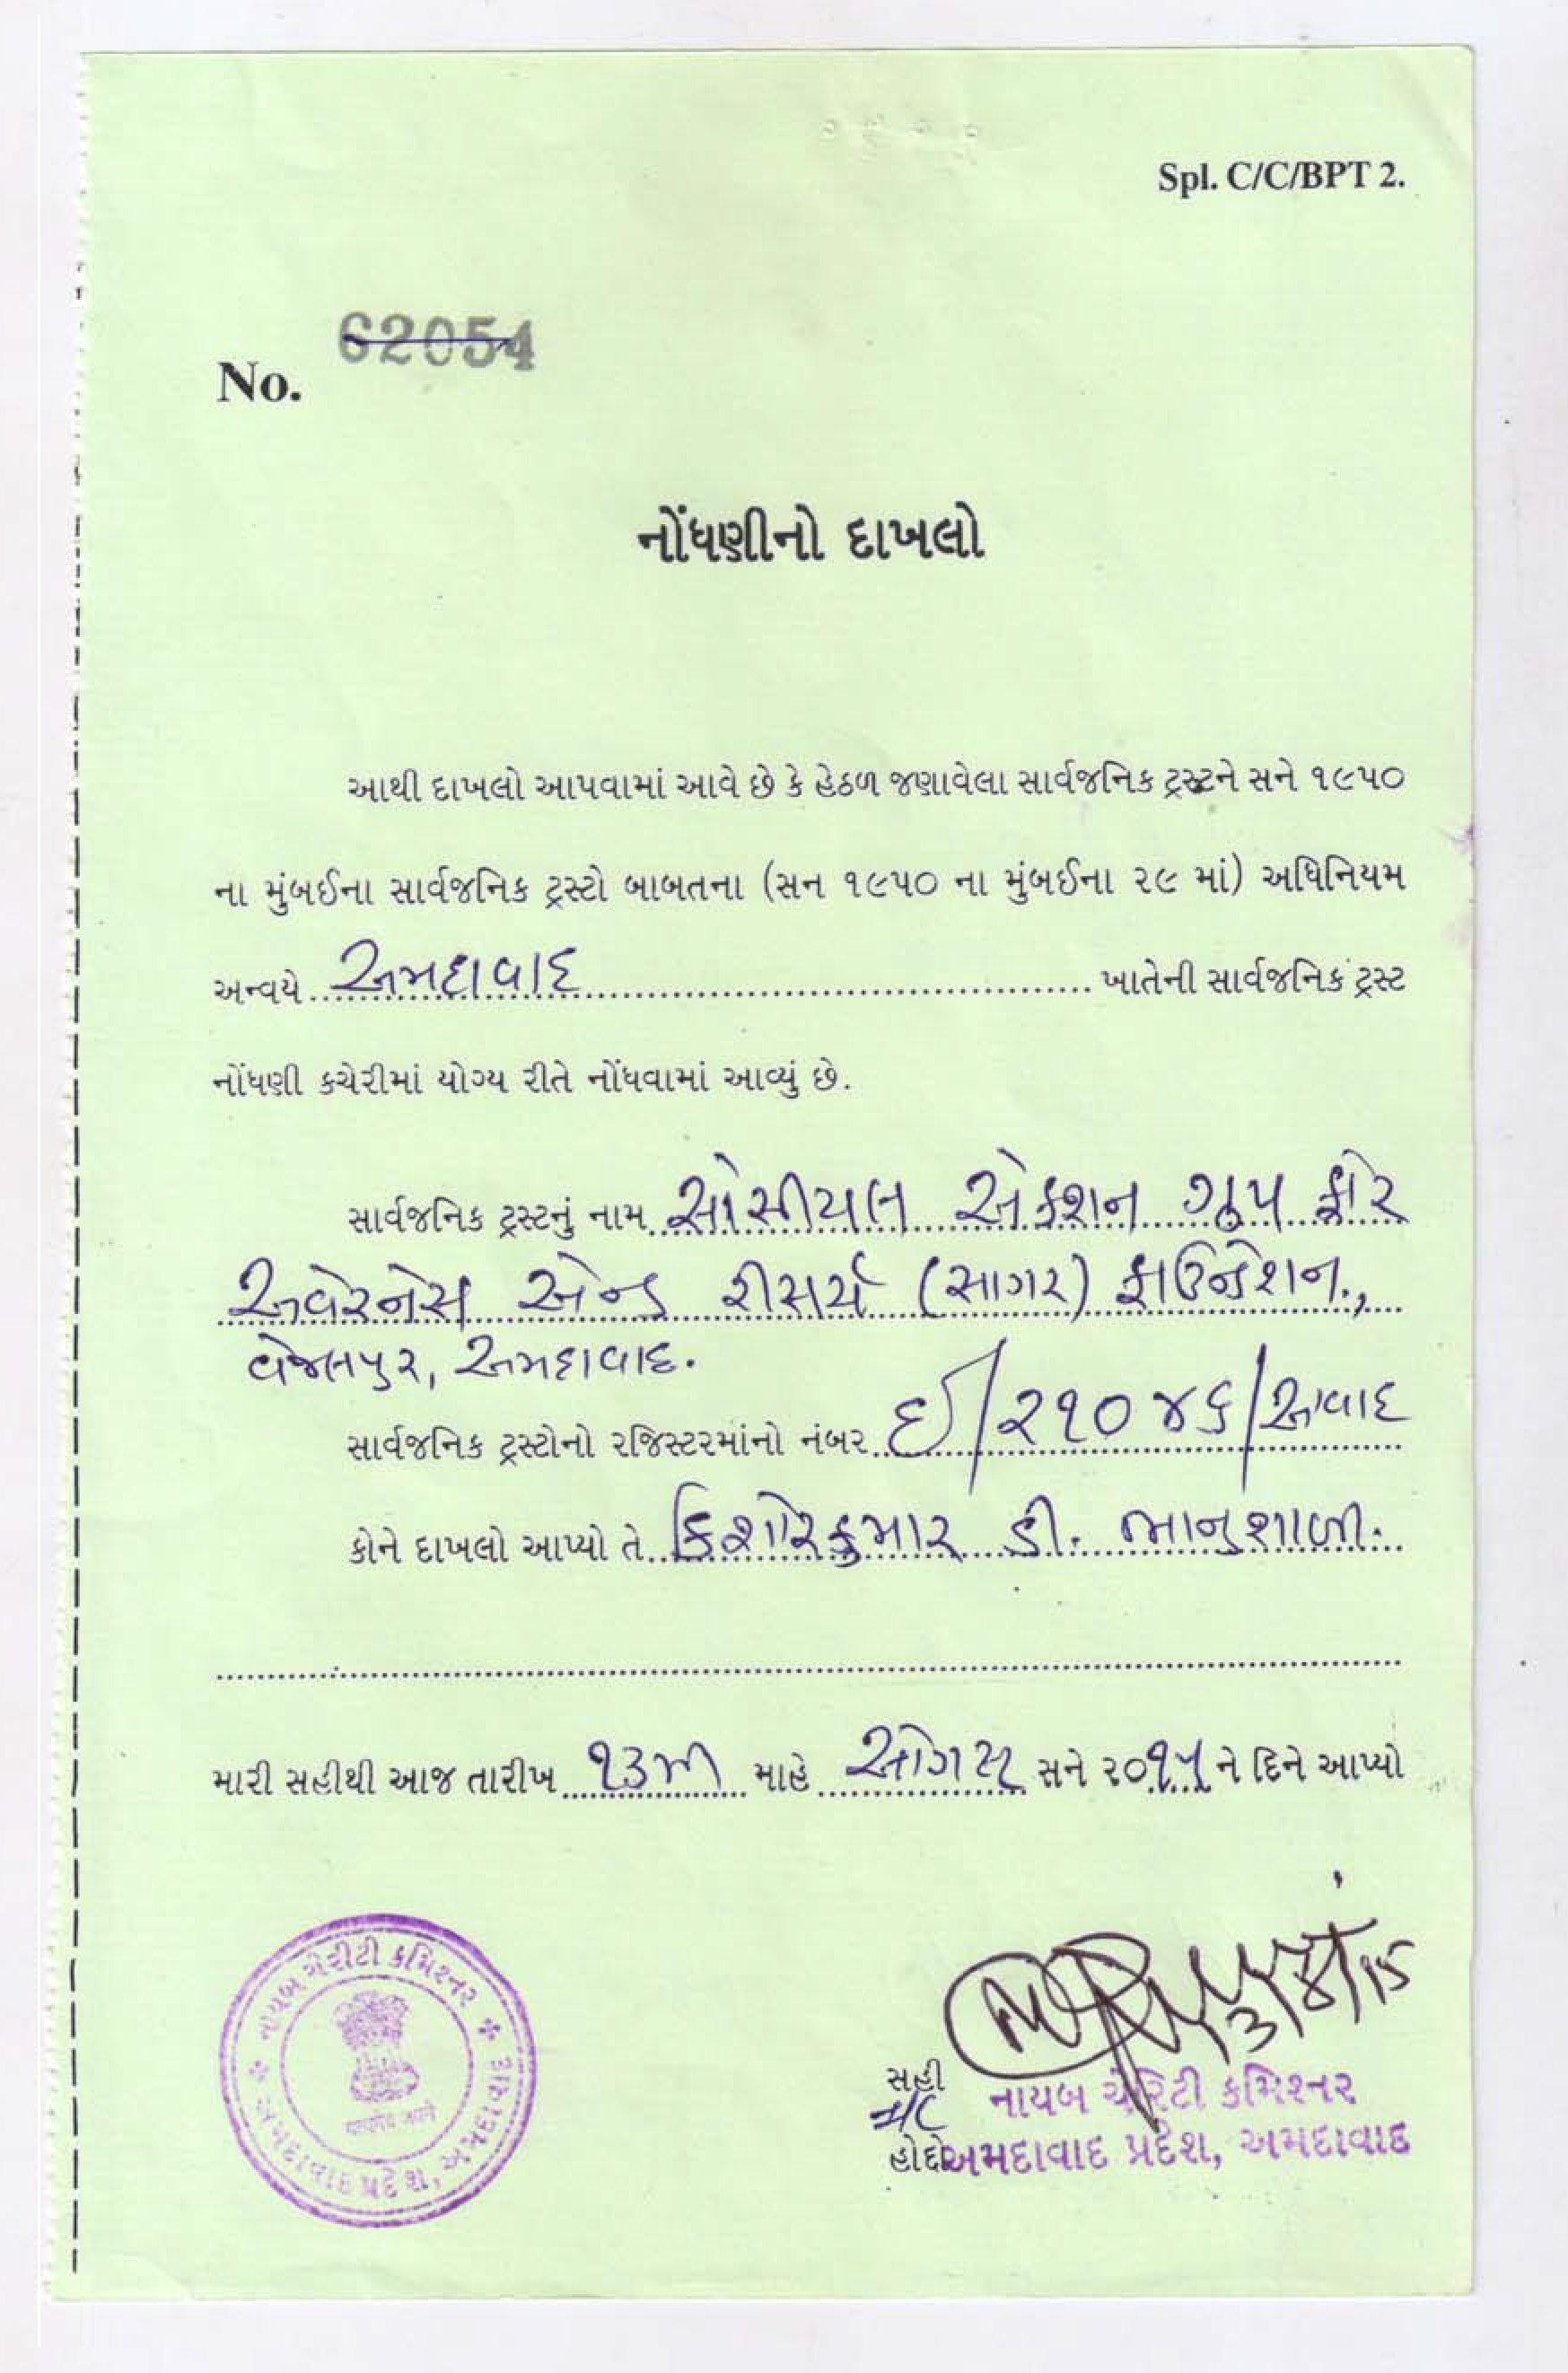 Spl. C/C/BPT 2.
62054
No.
નોંધણીનો દાખલો
આથી દાખલો આપવામાં આવે છે કે હેઠળ જણાવેલા સાર્વજનિક ટ્રસ્ટને સને ૧૯૫૦
ના મુંબઈના સાર્વજનિક ટ્રસ્ટો બાબતના (સન ૧૯૫૦ ના મુંબઈના ૨૯ માં) અધિનિયમ
અન્વયે અમદાવાદ ખાતેની સાર્વજનિક ટ્રસ્ટ
નોંધણી કચેરીમાં યોગ્ય રીતે નોંધવામાં આવ્યું છે.
સાર્વજનિક ટ્રસ્ટનું નામ સોસીયલ એકશન ગ્રુપ ફોર
અવેરનેસ એન્ડ રીસર્ચ (સાગર) ફાઉન્ડેશન.,
વેજલપુર, અમદાવાદ.
સાર્વજનિક ટ્રસ્ટોનો રજિસ્ટરમાંનો નંબર ઈ/૨૧૦૪૬/અ'વાદ
કોને દાખલો આપ્યો તે કિશોરકુમાર ડી. ભાનુશાળી.
મારી સહીથી આજ તારીખ ૧૩મી માહે ઓગષ્ટ સને ૨૦૧૫ ને દિને આપ્યો
નાયબ ચેરીટી કમિશ્નર
સત્યમેવ જયતે
અમદાવાદ પ્રદેશ, અમદાવાદ
3/8/15
સહી
નાયબ ચેરિટી કમિશ્નર
I/C
હોદ્દો અમદાવાદ પ્રદેશ, અમદાવાદ